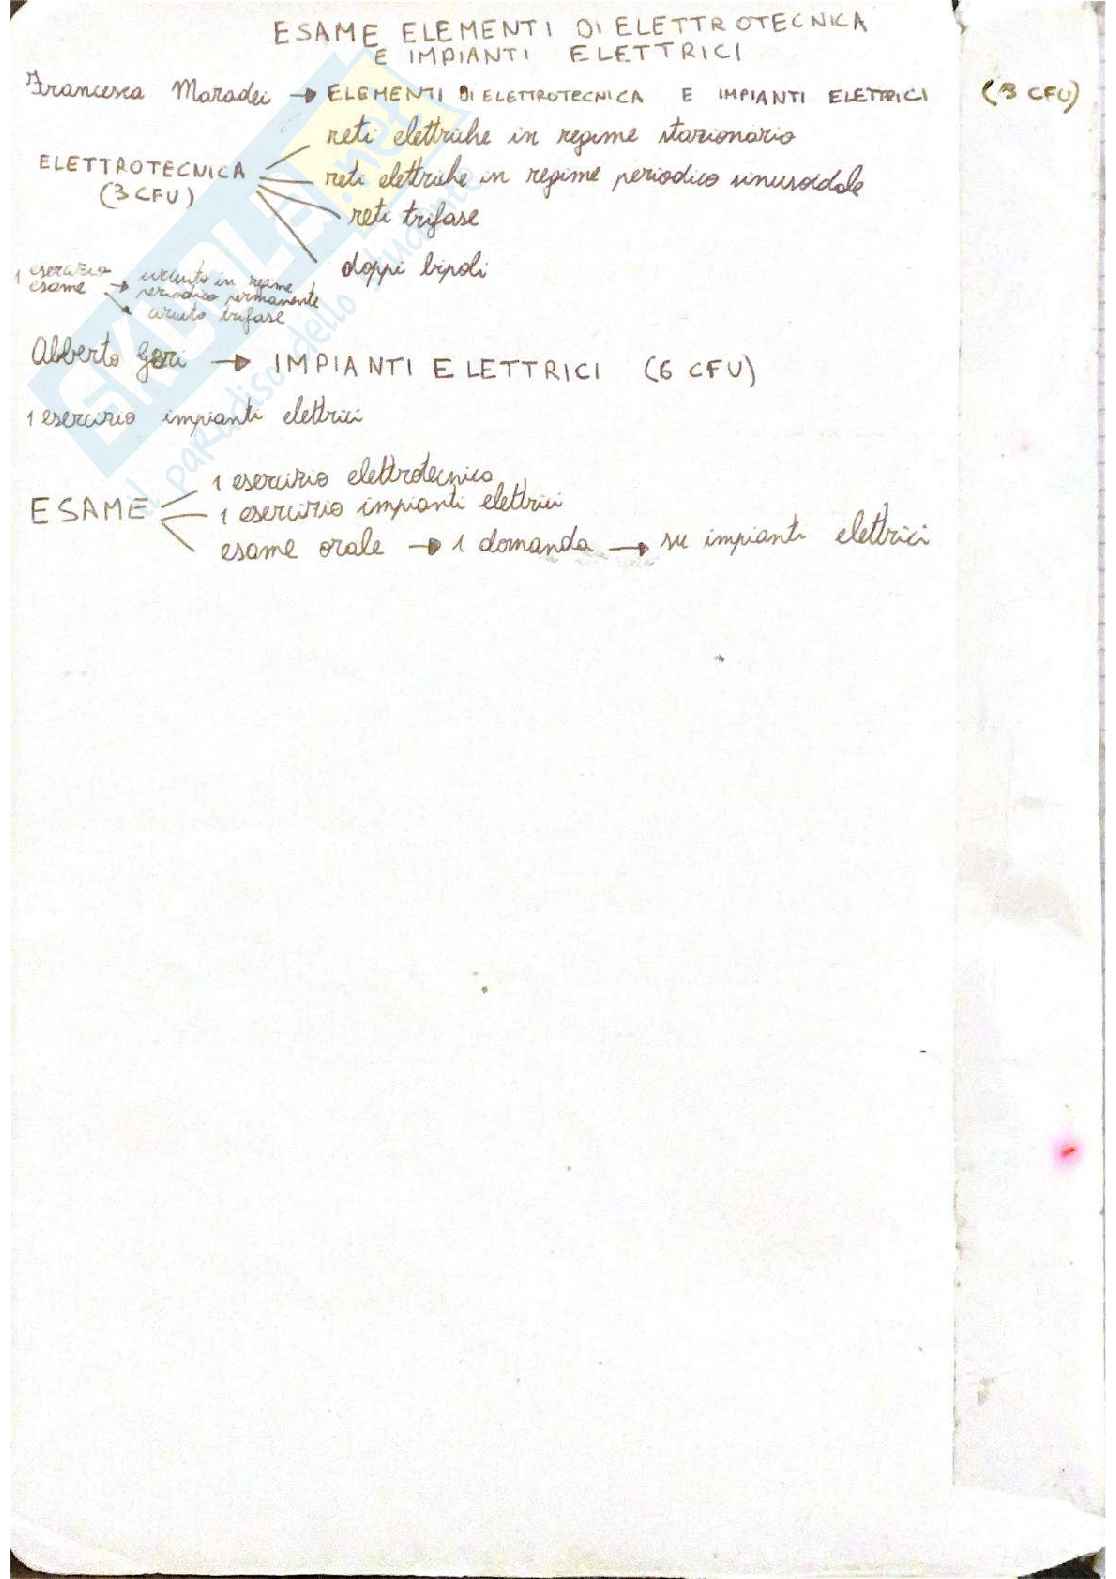 ESAME ELEMENTI DI ELETTROTECNICA
E IMPIANTI ELETTRICI
Francesca Maradei → ELEMENTI DI ELETTROTECNICA E IMPIANTI ELETTRICI (3 CFU)
reti elettriche in regime stazionario
ELETTROTECNICA
(3 CFU)
reti elettriche in regime periodico sinusoidale
reti trifase
doppi bipoli
1 esercizio esame → circuito in regime periodico permanente
→ circuito trifase
Alberto Geri → IMPIANTI ELETTRICI (6 CFU)
1 esercizio impianti elettrici
1 esercizio elettrotecnico
ESAME 1 esercizio impianti elettrici
esame orale → 1 domanda → su impianti elettrici
SKUOLA.net
il paradiso dello studente